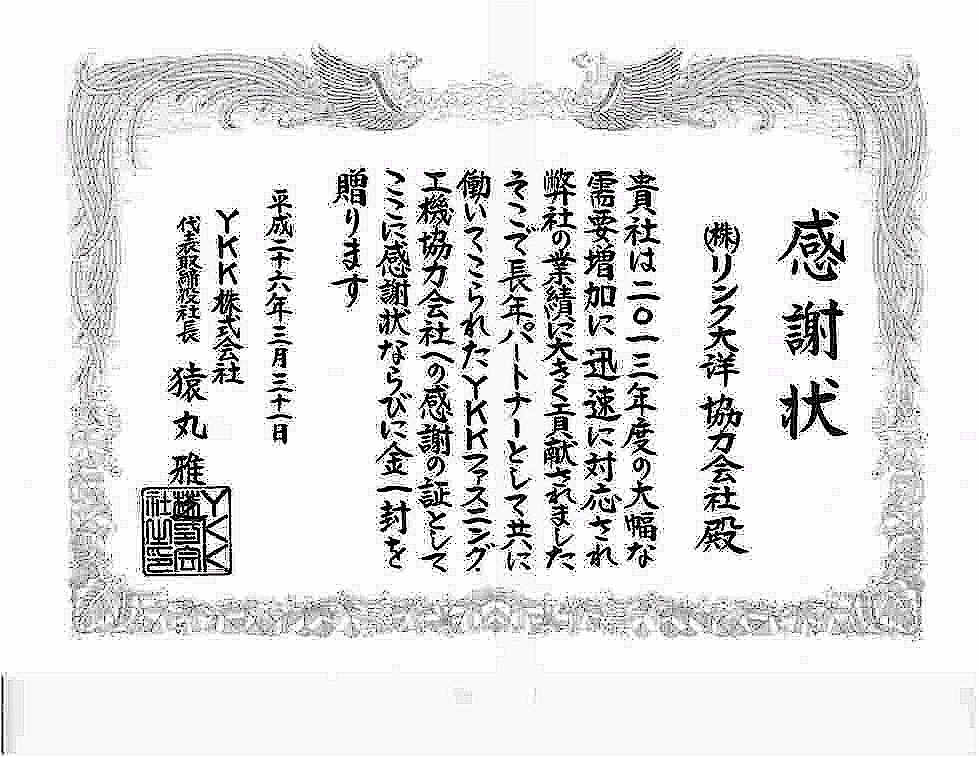 感謝状
㈱リンク大洋 協力会社 殿
貴社は二〇一三年度の大幅な
需要増加に迅速に対応され
弊社の業績に大きく貢献されました
そこで長年パートナーとして共に
働いてこられたYKKファスニング
工機協力会社への感謝の証として
ここに感謝状ならびに金一封を
贈ります
平成二十六年三月三十一日
YKK株式会社
代表取締役社長 猿丸 雅
YKK
株式会
社之印